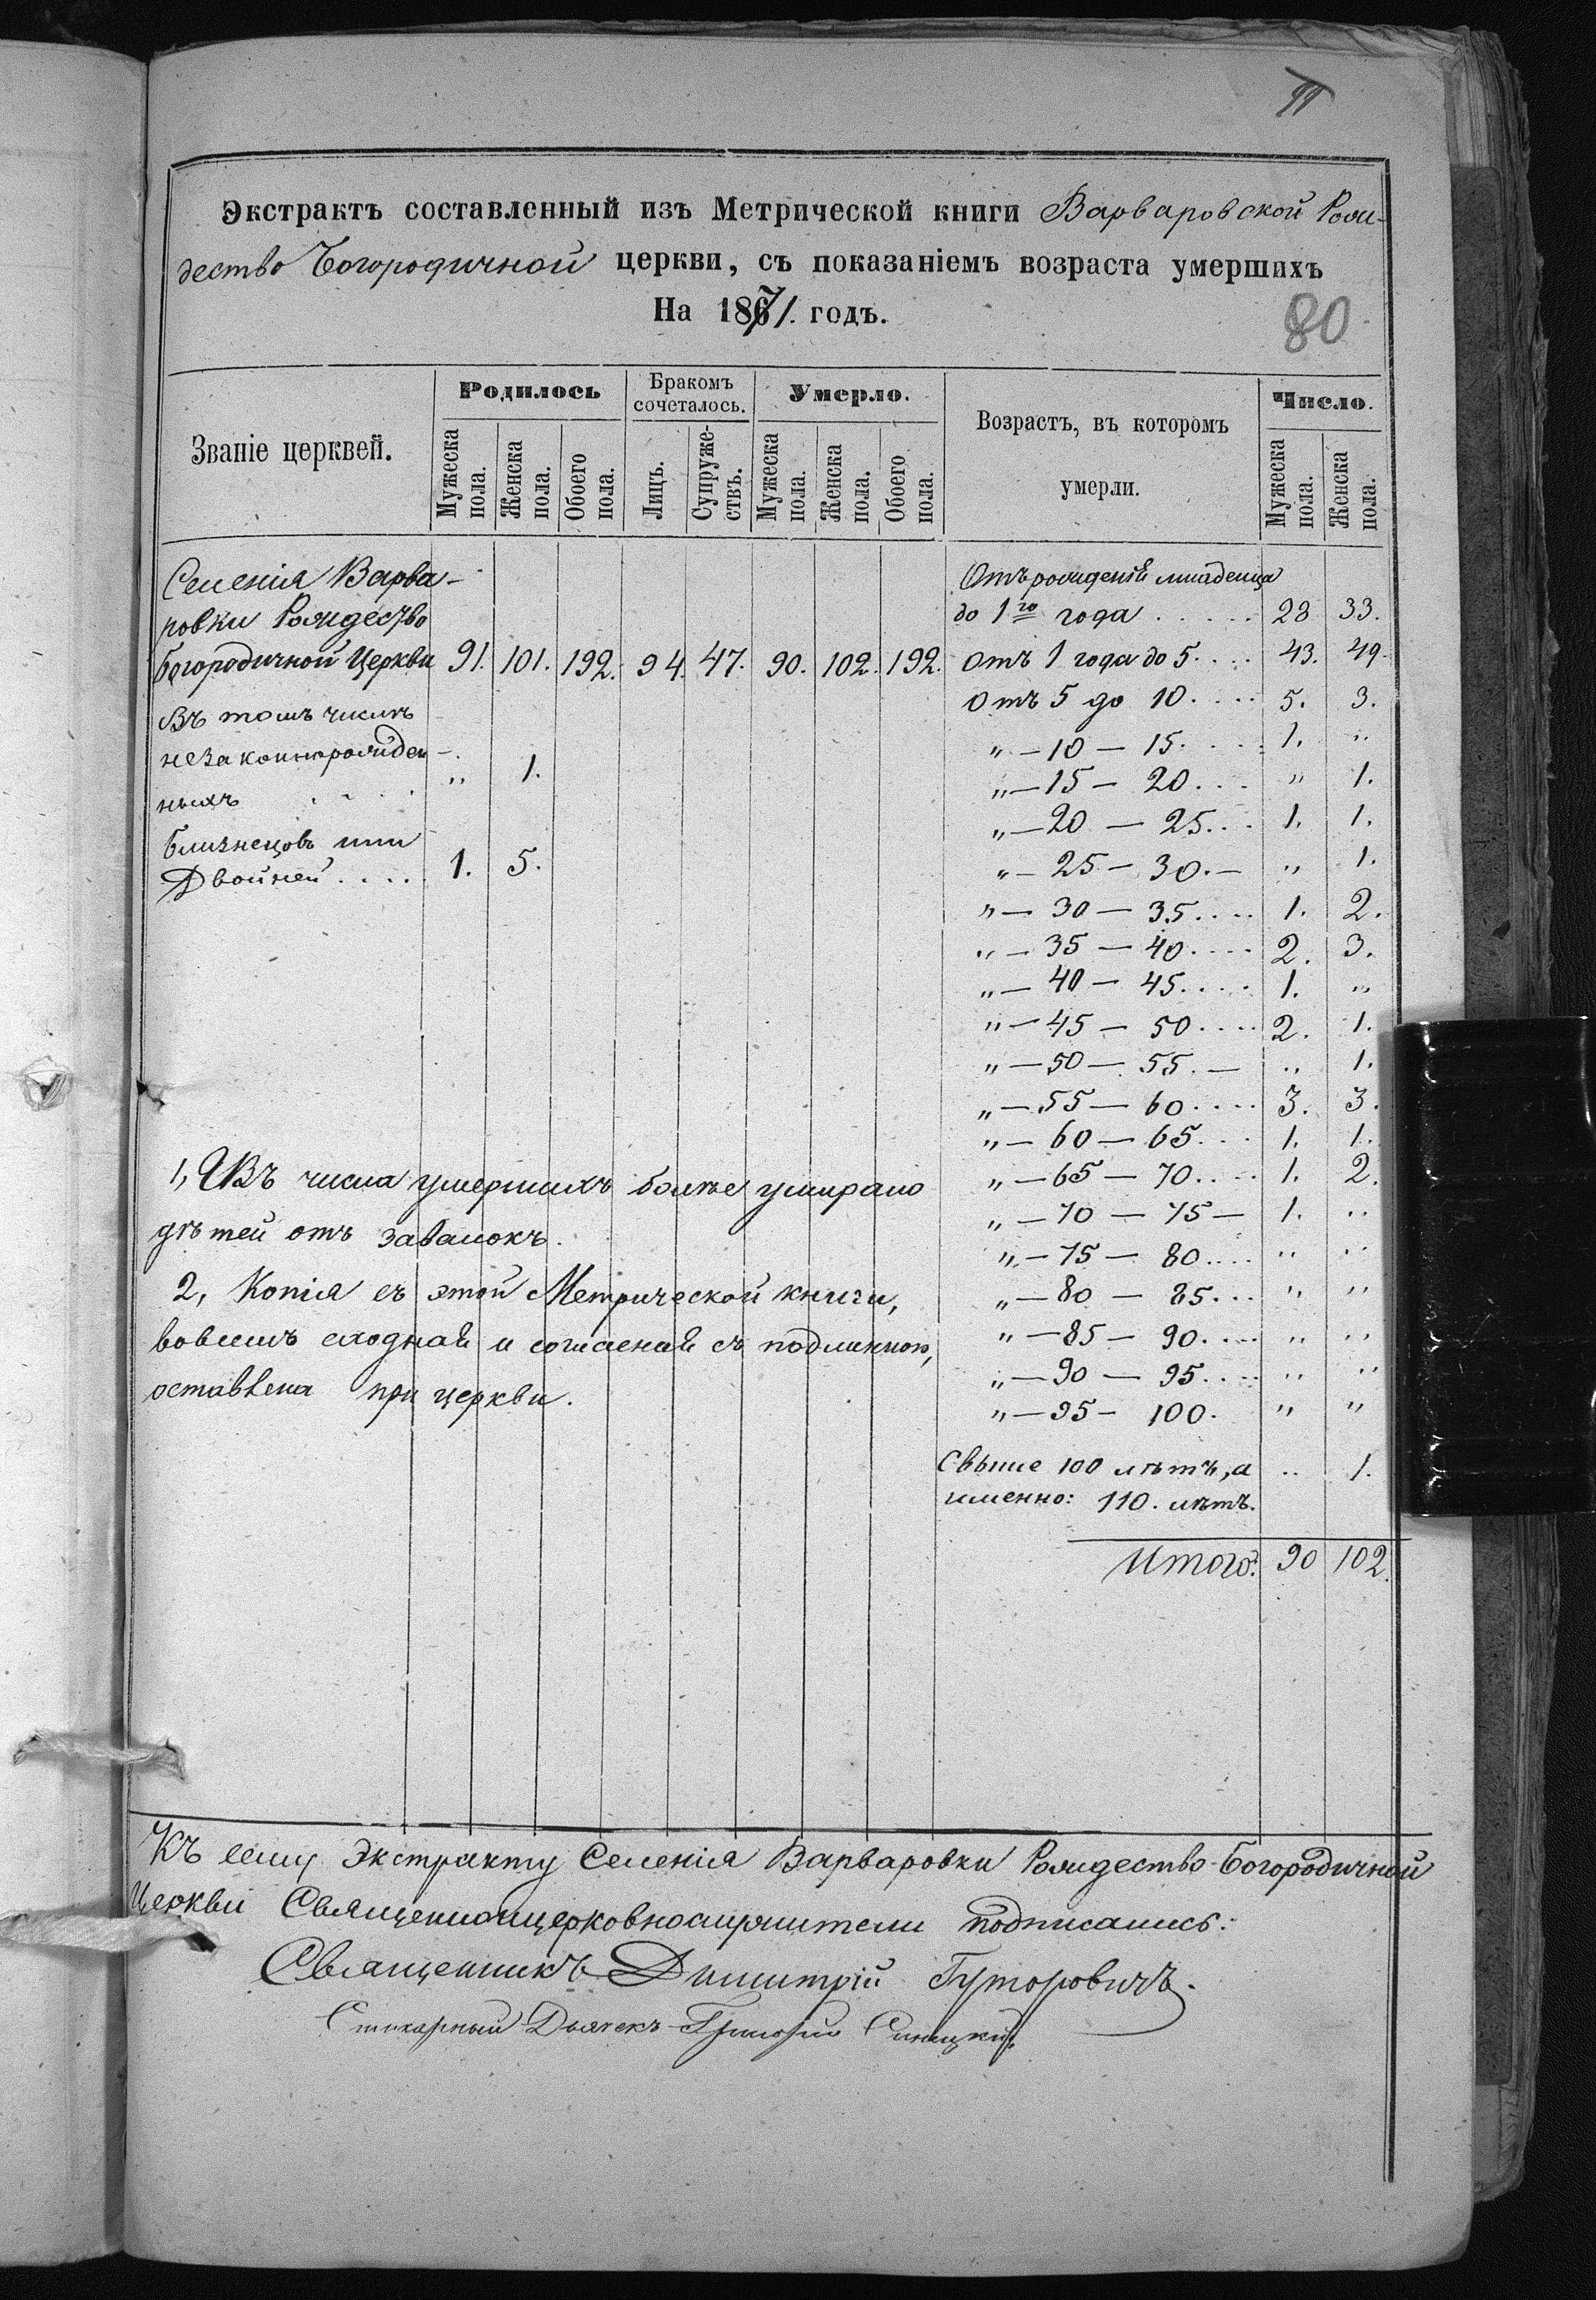 Экстрактъ составленный изъ Метрической книги Варваровской Рож-
дество Богородичной церкви, съ показаніемъ возраста умершихъ
На 1871. годъ.
80
Званіе церквей.
Родилось
Бракомъ сочеталось.
Умерло.
Возрастъ, въ которомъ умерли.
Число.
Мужеска пола.
Женска пола.
Обоего пола.
Лицъ.
Супруже-ствъ.
Мужеска пола.
Женска пола.
Обоего пола.
Мужеска пола.
Женска пола.
Селенія Варва-
ровки Рождество
Богородичной Церкви 91. 101. 192. 94. 47. 90. 102. 192.
Въ томъ числѣ
незаконнорожден-
ныхъ . . . . „ 1.
Близнецовъ или
Двойней . . . . 1. 5.
Отъ рожденія младенца
до 1го года . . . . . 28 33.
Отъ 1 года до 5. . . . 43. 49.
Отъ 5 до 10. . . . 5. 3.
„ — 10 — 15. . . . 1. „
„ — 15 — 20. . . „ 1.
„ — 20 — 25. . . 1. 1.
„ — 25 — 30. — „ 1.
„ — 30 — 35. . . . 1. 2.
„ — 35 — 40. . . . 2. 3.
„ — 40 — 45. . . . 1. „
„ — 45 — 50. . . . 2. 1.
„ — 50 — 55. — „ 1.
„ — 55 — 60. . . . 3. 3.
„ — 60 — 65. . . 1. 1.
„ — 65 — 70. . . . 1. 2.
„ — 70 — 75 — 1. „
„ — 75 — 80. . . . „ „
„ — 80 — 85. . . „ „
„ — 85 — 90. . . . „ „
„ — 90 — 95. . . . „ „
„ — 95 — 100. „ „
Свыше 100 лѣтъ, а „ 1.
именно: 110. лѣтъ.
Итого: 90 102.
1, Въ числѣ умершихъ болѣе умирало
дѣтей отъ завалокъ.
2, Копія съ этой Метрической книги,
вовсемъ сходная и согласная съ подлинною,
оставлена при церкви.
Къ сему Экстракту Селенія Варваровки Рождество-Богородичной
Церкви Священноицерковнослужители подписались:
Священникъ Димитрій Гуторовичъ.
Стихарный Дьячекъ Григорій Синицкій.